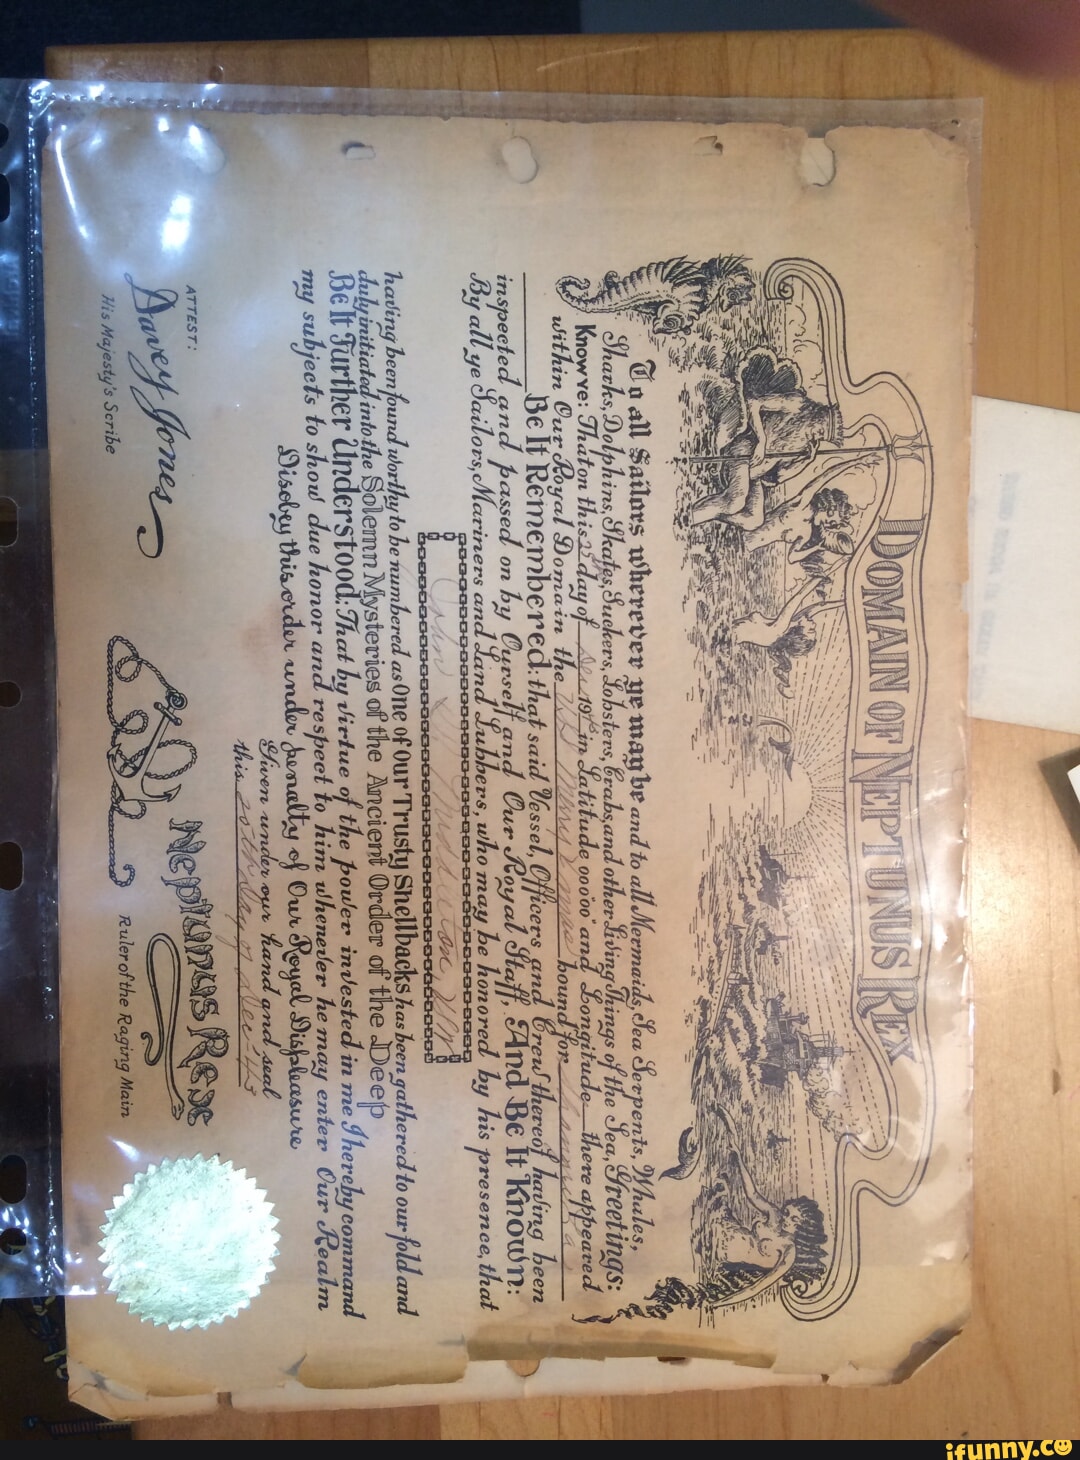 DOMAIN OF NEPTUNUS REX
To all Sailors wherever ye may be and to all Mermaids, Sea Serpents, Whales,
Sharks, Dolphins, Skates, Suckers, Lobsters, Crabs, and other Living Things of the Sea, Greetings:
Know ye: That on this day of 19 in Latitude 00000 and Longitude there appeared
within Our Royal Domain the bound for
Be It Remembered: that said Vessel, Officers and Crew thereof having been
inspected and passed on by Ourself and Our Royal Staff. And Be It Known:
By all ye Sailors, Mariners and Land Lubbers, who may be honored by his presence, that
having been found worthy to be numbered as One of Our Trusty Shellbacks has been gathered to our fold and
duly initiated into the Solemn Mysteries of the Ancient Order of the Deep
Be It Further Understood: That by virtue of the power invested in me I hereby command
my subjects to show due honor and respect to him whenever he may enter Our Realm
Disobey this order under penalty of Our Royal Displeasure
Given under our hand and seal
this 20th day of
ATTEST:
Davey Jones
His Majesty's Scribe
Neptunus Rex
Ruler of the Raging Main
ifunny.co